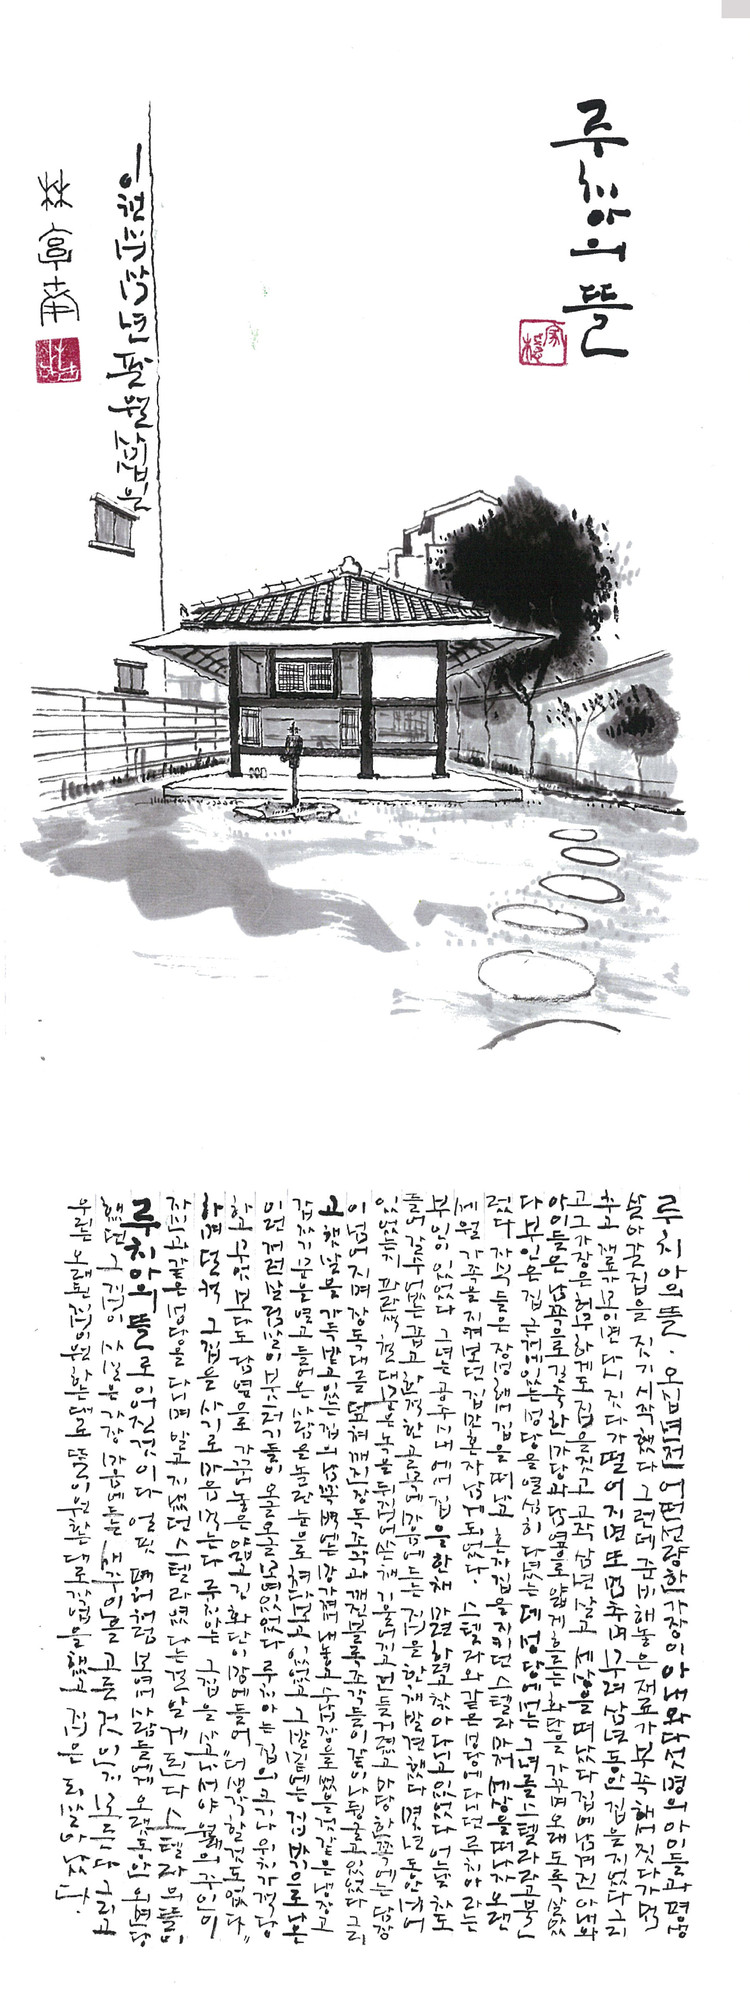 루치아의 뜰
林亨南
루치아의 뜰. 오십년전 어떤 선량한 가장이 아내와 다섯명의 아이들과 평생
살아갈 집을 짓기 시작했다 그런데 준비해놓은 재료가 부족해서 짓다가 멈
추고 재료가 모이면 다시 짓다가 떨어지면 또 멈추며 무려 삼년동안 집을 지었다 그리
고 그 가장은 허무하게도 집을 짓고 고작 삼년 살고 세상을 떠났다 집에 남겨진 아내와
아이들은 남쪽으로 길쭉한 마당과 담옆으로 얇게 흐르는 화단을 가꾸며 오래도록 살았
다 부인은 집 근처에 있는 성당을 열심히 다녔는데 성당에서는 그녀를 스텔라라고 불
렀다 자식들은 장성해서 집을 떠났고 혼자 집을 지키던 스텔라마저 세상을 떠나자 오랜
세월 가족을 지켜보던 집만 혼자 남게되었다. 스텔라와 같은 성당에 다니던 루치아라는
부인이 있었다 그녀는 공주시내에서 집을 한채 마련하려고 찾아다니고 있었다 어느날 차도
들어갈 수 없는 좁고 한적한 골목에 마음에 드는 집을 한개 발견했다 몇년동안 비어
있었는지 파란색 철대문은 녹을 뒤집어쓴채 기울어지고 흔들거렸고 마당 한쪽에는 담장
이 넘어지며 장독대를 덮쳐 깨진 장독조각과 깨진 블록조각들이 같이 나뒹굴고 있었다 그리
고 햇살을 가득 받고 있는 집의 남쪽벽에는 내놓고 것같은 냉장고
갑자기 문을 열고 들어온 사람을 놀란 눈으로 쳐다보고 있었고 그 발끝에는 집 밖으로 나온
이런저런 살림살이 부스러기들이 오글오글 모여있었다 루치아는 집의 크기나 위치가 적당
하고 무엇보다도 담옆으로 가꿔놓은 얇고 긴 화단이 맘에 들어 "더 생각할것도 없다"
하며 덜컥 그 집을 사기로 마음먹는다 루치아는 그 집을 사고나서야 원래의 주인이
자신과 같은 성당을 다니며 알고 지냈던 스텔라였다는 걸 알게된다 스텔라의 뜰이
루치아의 뜰로 이어진것이다 언뜻 폐허처럼 보여서 사람들에게 오랫동안 외면당
했던 그 집이 사실은 가장 마음에 드는 새주인을 고른 것인지 모른다 그리고
우리는 오래된 집이 원하는대로 뜰이 원하는대로 작업을 했고 집은 되살아났다.